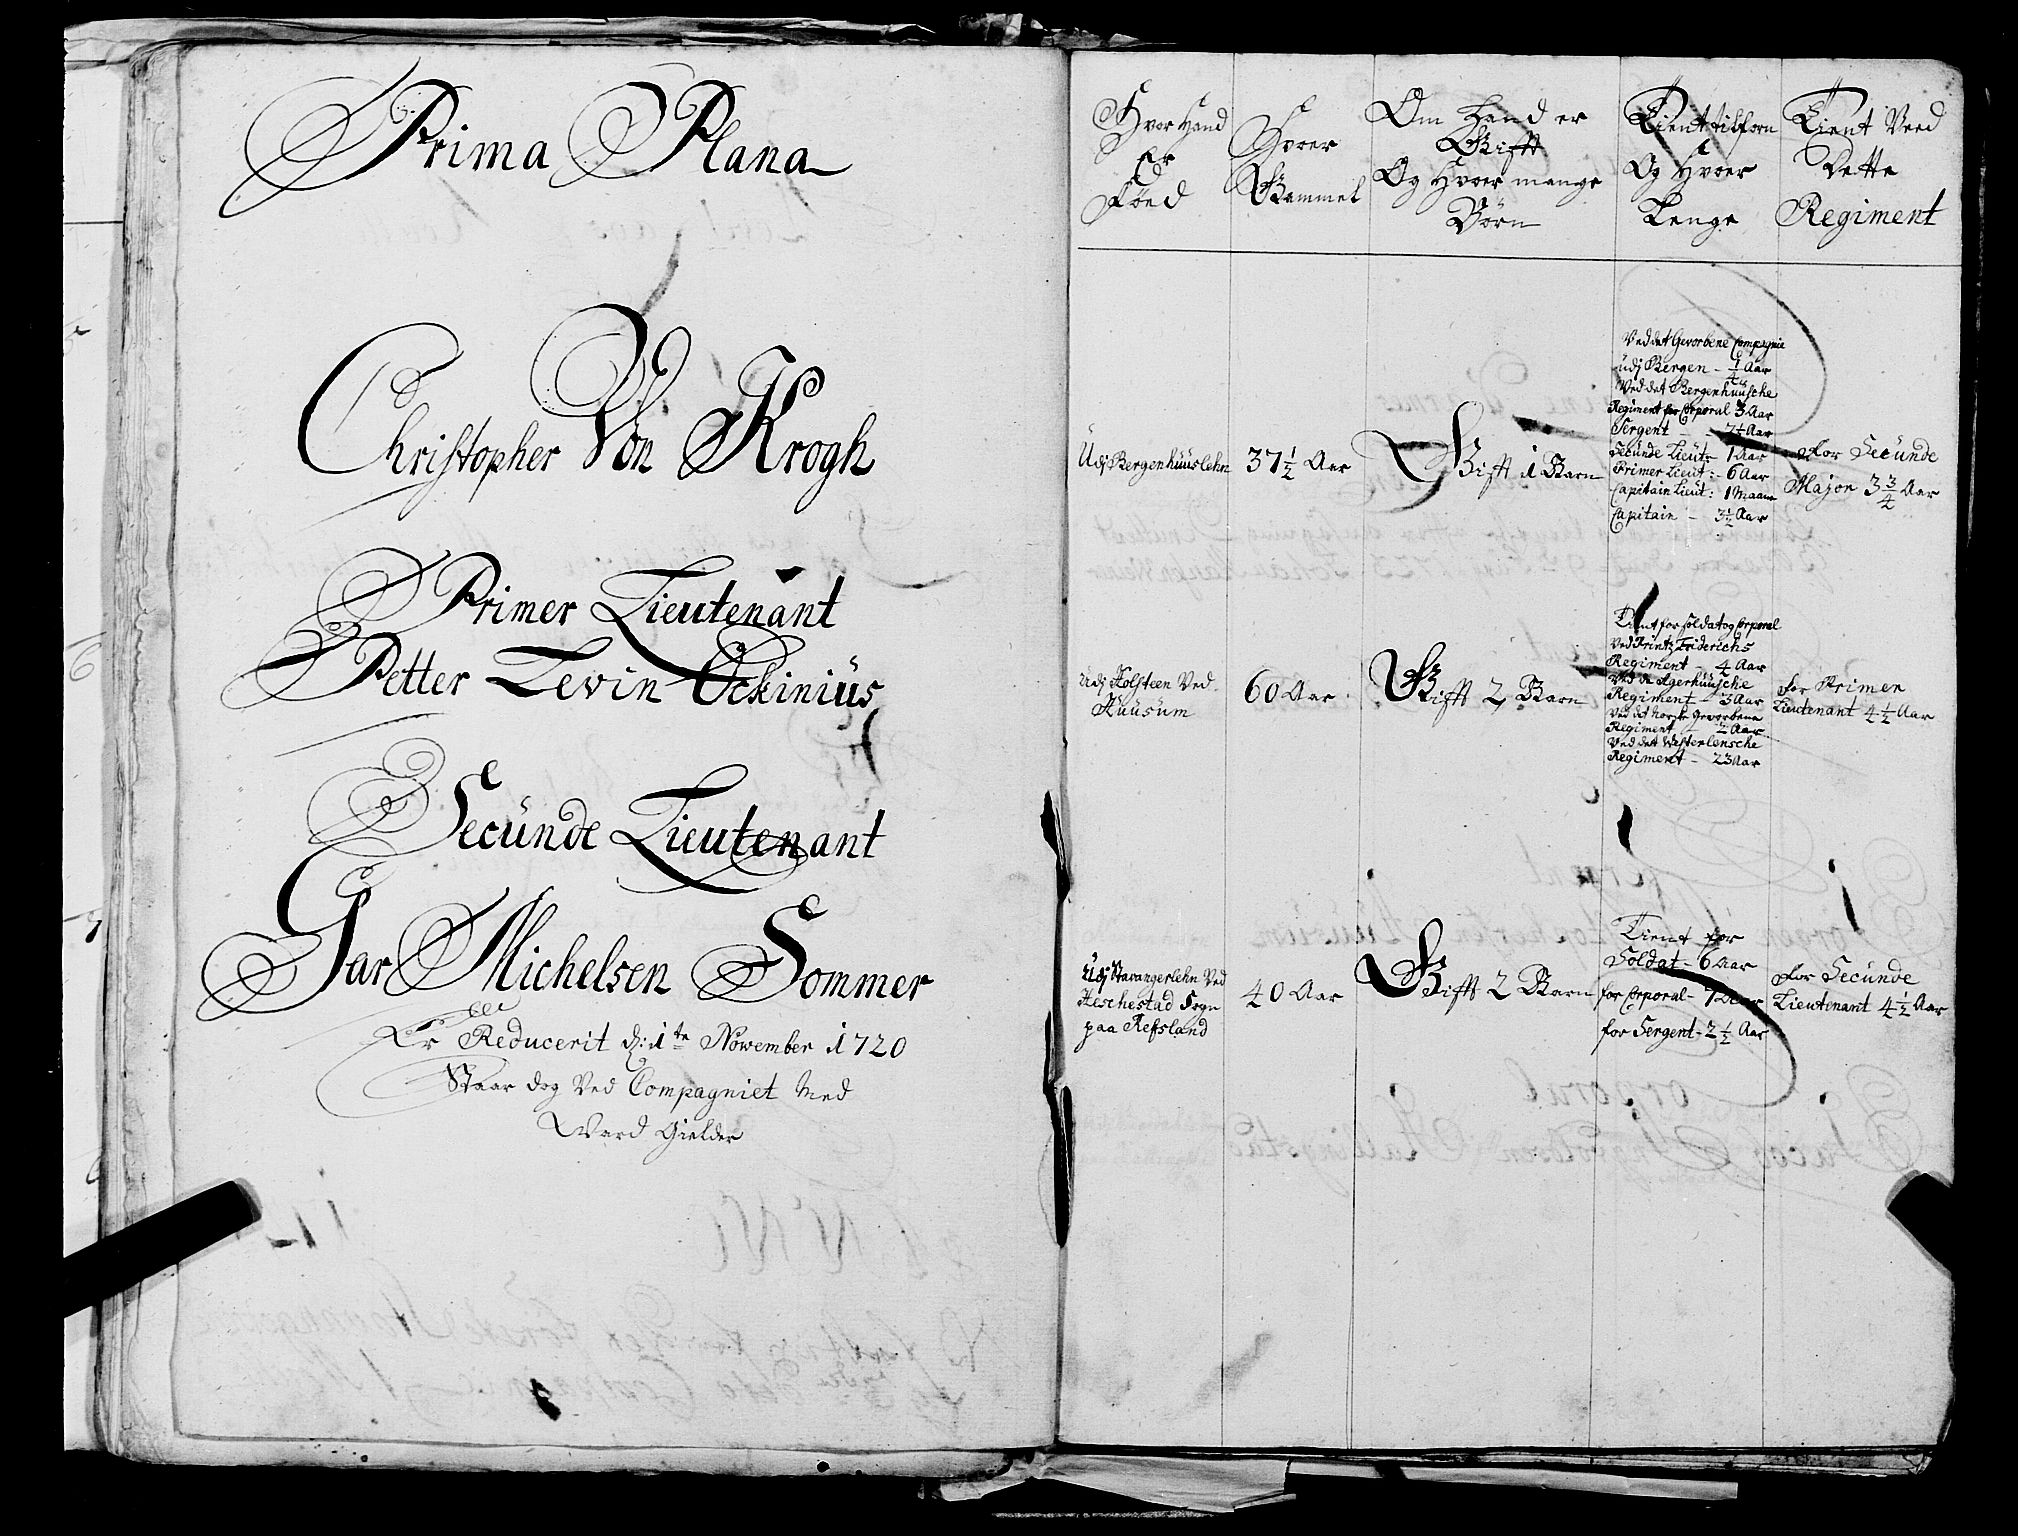 Prima Plana
Christopher Von Krogh
Primer Lieutenant
Petter Levin Ockiniüs
Secünde Lieutenant
Michelsen Sommer
Er Reducerit d: 1te November 1720
Staar dog Ved Compagniet Med
Ward Gielder
Hvor Hand
Er
Föed
Hvor
Gammel
Om Hand er
Gifft
Og Hvor mange
Börn
Tient tilforn
Og Hvor
Lenge
Tient Ved
Dette
Regiment
Udj Bergenhüüslehn
37 1/2 Aar
Gifft 1 Barn
Ved det Gevorbene Compagnie
üdj Bergen - 1/4 Aar
Ved det Bergenhüüsche
Regiment for Corporal 3 Aar
Sergent - 2 1/2 Aar
Secünde Lieut: 1 Aar
Primer Lieut: - 6 Aar
Capitain Lieut: 1 Maane
Capitain - 3 1/2 Aar
For Secünde
Major 3 3/4 Aar
Udj Holsteen Ved
Hüüsüm
60 Aar
Gifft 2 Barn
Tient for Soldat og Corporal
Ved Printz Friderichs
Regiment - 4 Aar
Ved de Agerhüüsche
Regiment - 3 Aar
Ved det Norske Gevorbene
Regiment - 1/2 Aar
Ved det Westerlensche
Regiment - 23 Aar
For Primer
Lieutenant 4 1/2 Aar
Udj Stavangerlehn Ved
Heschestad Sogn
paa Refsland
40 Aar
Gifft 2 Barn
Tient for
Soldat - 6 Aar
for Corporal - 7 Aar
for Sergent - 2 1/2 Aar
For Secünde
Lieutenant 4 1/2 Aar